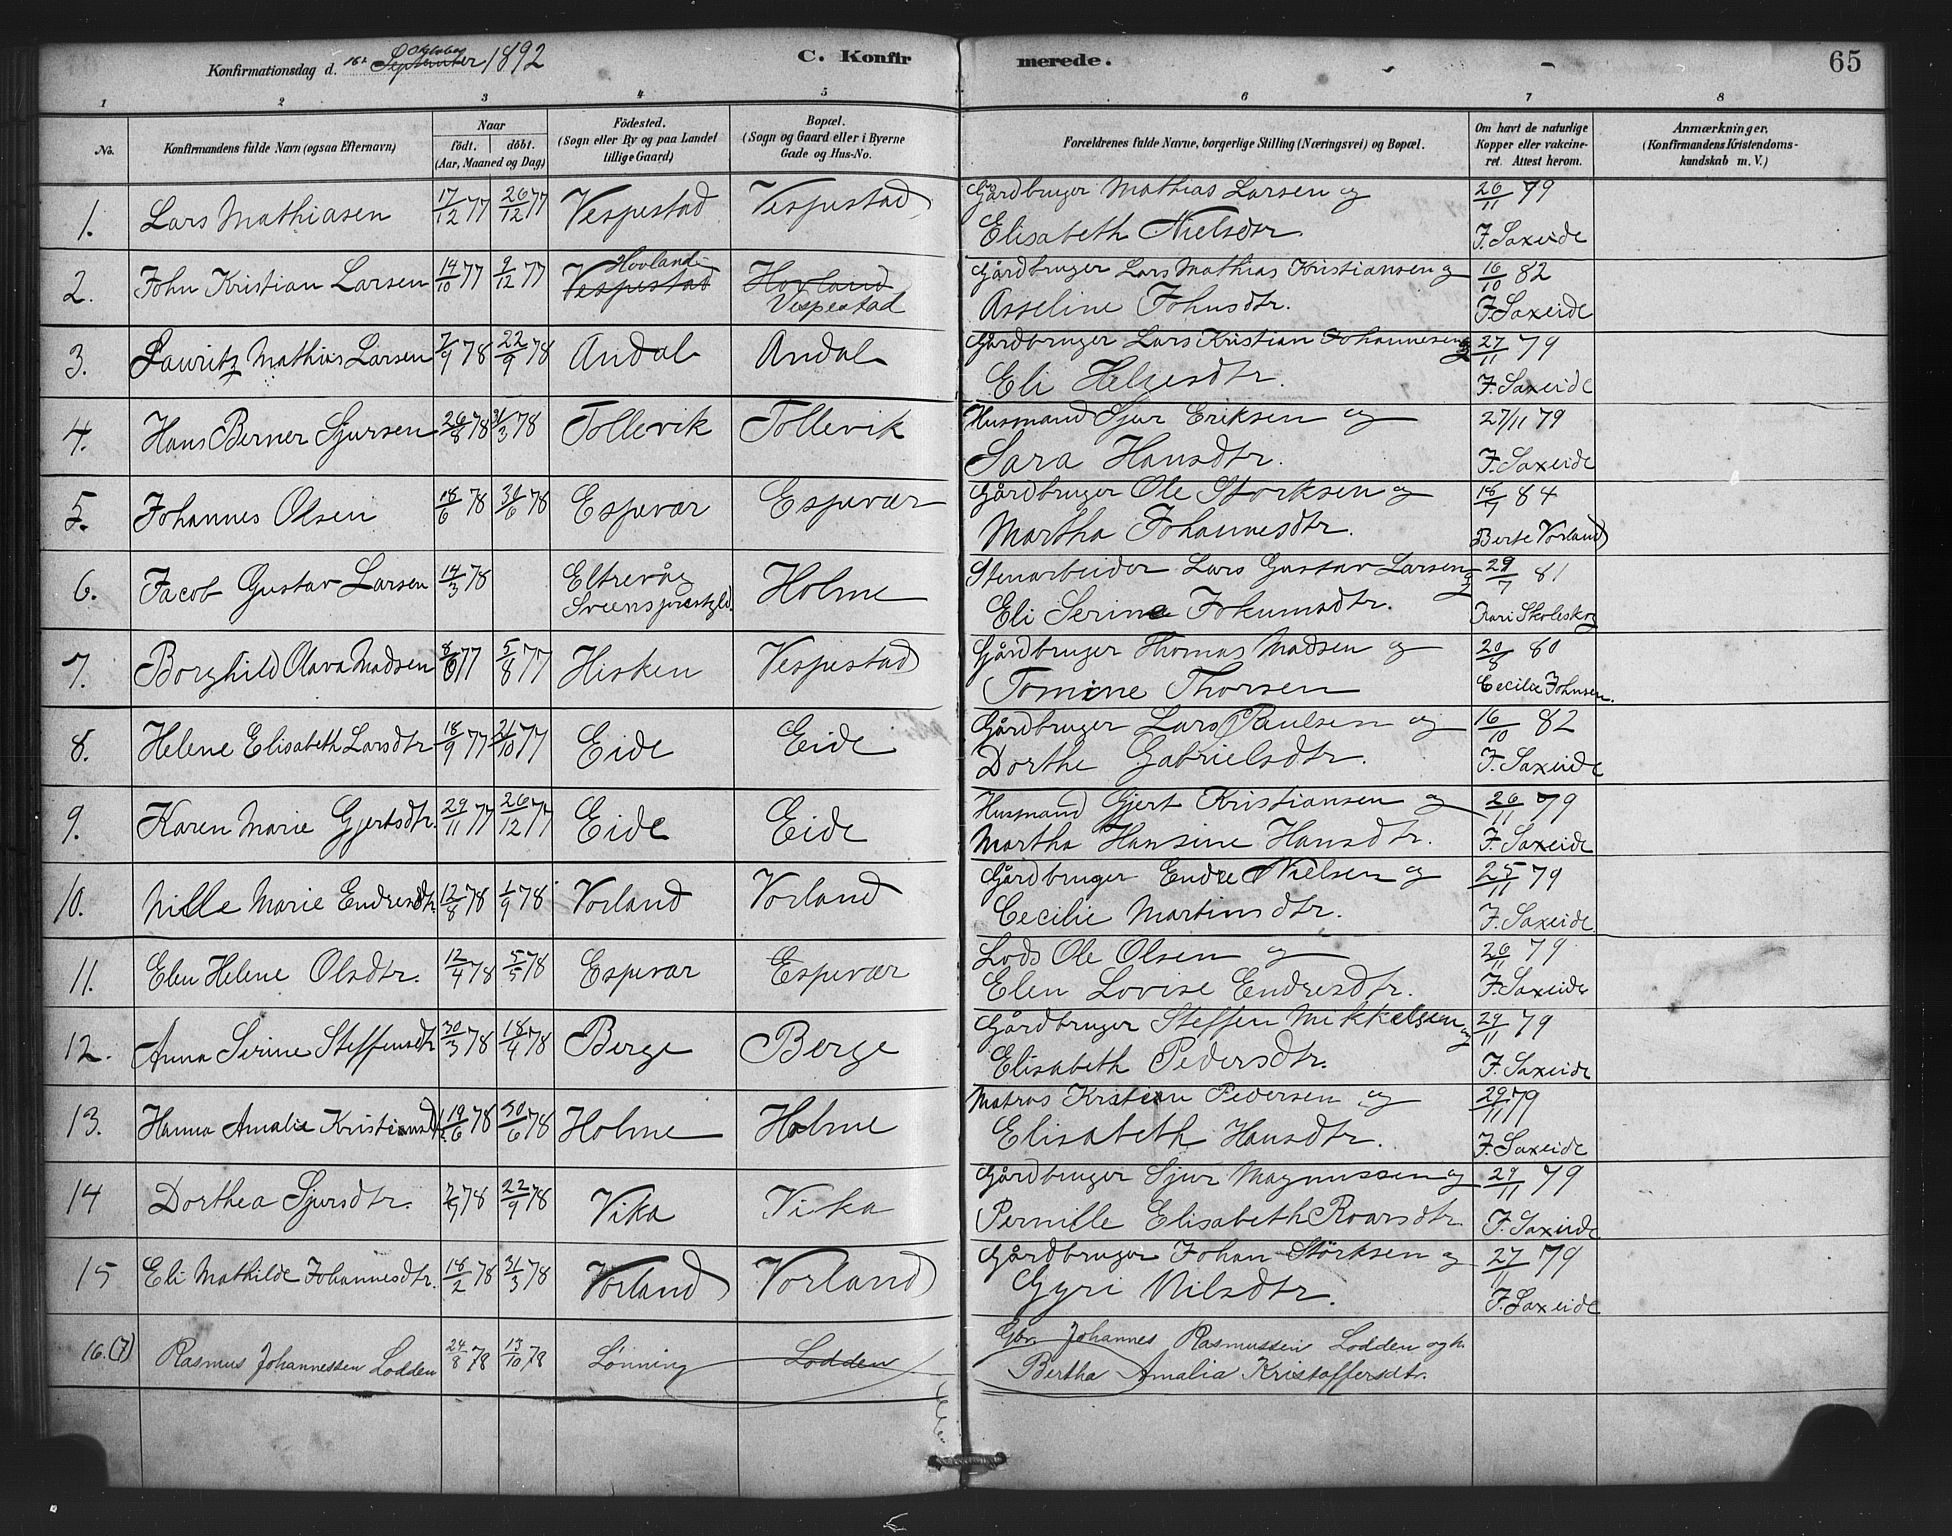 Konfirmationsdag d. 16. Oktober September 1892 C. Konfirmerede. 65
1 2 3 4 5 6 7 8
No. Konfirmandens fulde Navn (ogsaa Efternavn) Naar födt. döbt. (Aar, Maaned og Dag) Födested. (Sogn eller By og paa Landet tillige Gaard) Bopæl. (Sogn og Gaard eller i Byerne Gade og Hus-No. Forældrenes fulde Navne, borgerlige Stilling (Næringsvei) og Bopæl. Om havt de naturlige Kopper eller vakcineret. Attest herom. Anmærkninger. (Konfirmandens Kristendomskundskab m. V.)
1. Lars Mathiasen 17/12 77 26/12 77 Vespestad Vespestad Gårdbruger Mathias Larsen og 26/11 79
Elisabeth Nielsdtr. F. Saxeide
2. John Kristian Larsen 14/10 77 9/12 77 Hovland Vespestad Hovland Vespestad Gårdbruger Lars Mathias Kristiansen og 16/10 82
Asseline Johnsdtr. F. Saxeide
3. Lauritz Mathias Larsen 7/9 78 22/9 78 Andal Andal Gårdbruger Lars Kristian Johannesen og 27/11 79
Eli Helgesdtr. F. Saxeide
4. Hans Berner Sjursen 78 31/3 78 Tollevik Tollevik Husmand Sjur Eriksen og 27/11 79
Sara Hansdtr. F. Saxeide
5. Johannes Olsen 18/6 78 30/6 78 Espevær Espevær Gårdbruger Ole Storksen og 84
Martha Johannesdtr. Berte Vorland
6. Jacob Gustav Larsen 14/3 78 Eltrevåg Sveens præstgld. Holme Stenarbeider Lars Gustav Larsen og 29/7 81
Eli Serine Jokumsdtr. Kari Skoleskog
7. Borghild Olava Madsen 8/6 77 5/8 77 Hisken Vespestad Gårdbruger Thomas Madsen og 20/8 80
Tomine Thorsen Cecilie Johnsen.
8. Helene Elisabeth Larsdtr 18/9 77 21/10 77 Eide Eide Gårdbruger Lars Paulsen og 16/10 82
Dorthe Gabrielsdtr. F. Saxeide
9. Karen Marie Gjertsdtr. 29/11 77 26/12 77 Eide Eide Husmand Gjert Kristiansen og 26/11 79
Martha Hansine Hansdtr. F. Saxeide
10. Nille Marie Endresdtr. 12/8 78 1/9 78 Vorland Vorland Gårdbruger Endre Nielsen og 25/11 79
Cecilie Martinsdtr. F. Saxeide
11. Elen Helene Olsdtr. 12/4 78 5/5 78 Espevær Espevær Lods Ole Olsen og 26/11 79
Elen Lovise Endresdtr. F. Saxeide
12. Anna Serine Steffensdtr 30/3 78 18/4 78 Berge Berge Gårdbruger Steffen Mikkelsen og 29/11 79
Elisabeth Pedersdtr. F. Saxeide
13. Hanna Amalie Kristiansdtr 19/6 78 30/6 78 Holme Holme Matros Kristian Pedersen og 29/11 79
Elisabeth Hansdtr. F. Saxeide
14 Dorthea Sjursdtr. 78 22/9 78 Vika Vika Gårdbruger Sjur Magnussen og 29/11 79
Pernille Elisabeth Roarsdtr. F. Saxeide
15 Eli Mathilde Johannesdtr. 18/2 78 31/3 78 Vorland Vorland Gårdbruger Johan Störksen og 27/11 79
Gyri Nilsdtr. F. Saxeide
16.(7) Rasmus Johannessen Lodden 24/8 78 13/10 78 Lönning Lodden Gbr. Johannes Rasmussen Lodden og h.
Bertha Amalia Kristoffersdtr.